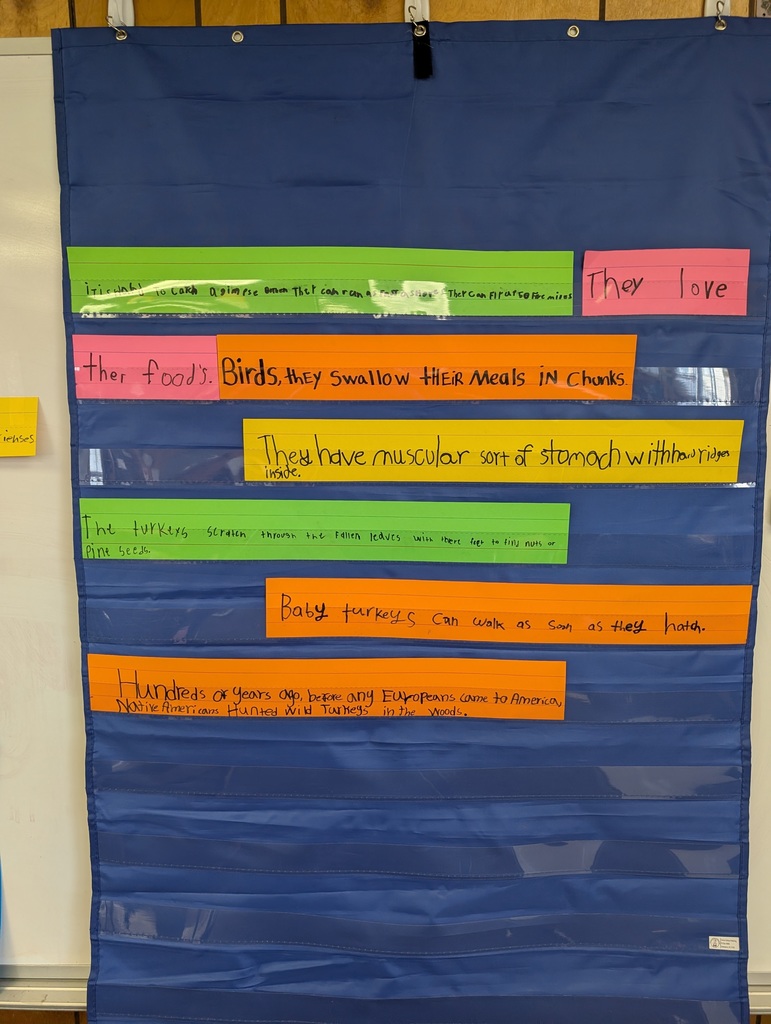 to catch a glimpse
They can run as fast
They can fly up to
They love
ther food's.
Birds, they swallow their meals in chunks.
They have muscular sort of stomach with hard ridges
inside.
The turkeys scratch through the fallen leaves with there feet to find nuts or
pine seeds.
Baby turkeys can walk as soon as they hatch.
Hundreds of years ago, before any Europeans came to America
Native Americans Hunted wild Turkeys in the woods.